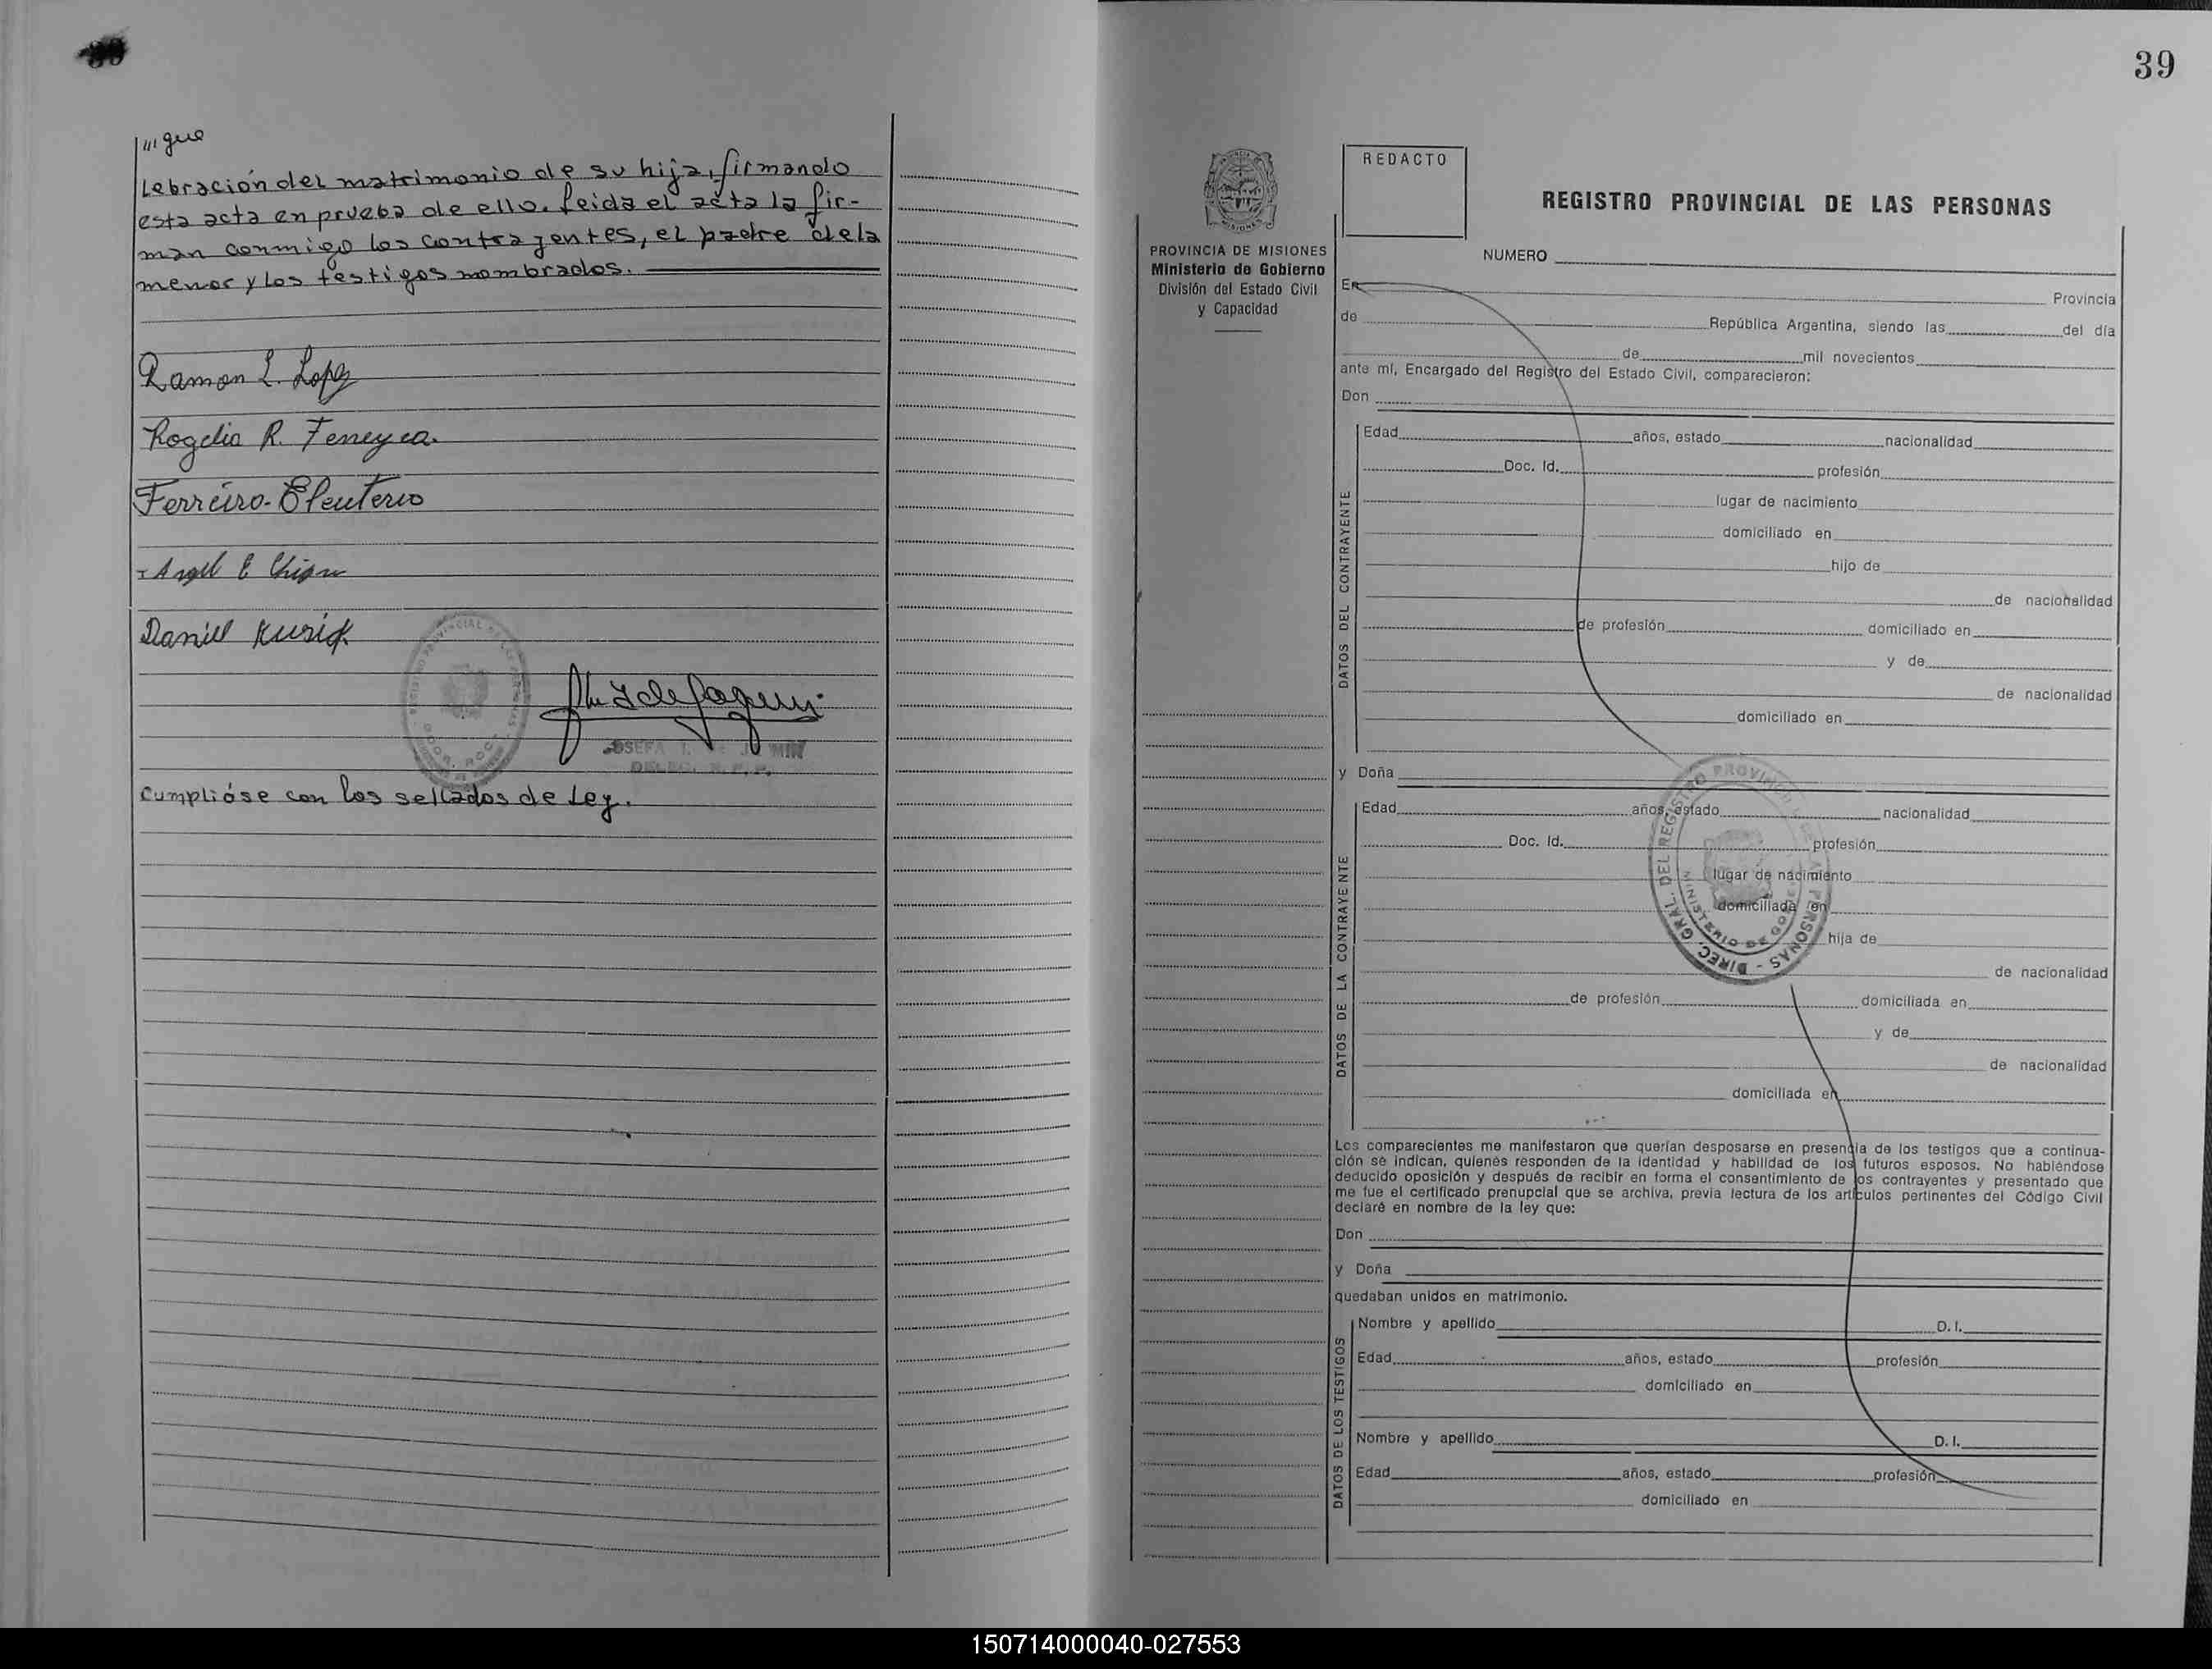 /// gue
Lebración del matrimonio de su hija, firmando
esta acta en prueba de ello. Leida el acta la fir-
man conmigo los contrayentes, el padre de la
menor y los testigos nombrados.
Ramon L. Lopez
Rogelia R. Ferreyra.
Ferreiro-Eleuterio
Angel E
Daniel
DELEG. R. P. P.
Cumplióse con los sellados de Ley.
39
PROVINCIA DE MISIONES
Ministerio de Gobierno
División del Estado Civil
y Capacidad
REDACTO
REGISTRO PROVINCIAL DE LAS PERSONAS
NUMERO
En
Provincia
de República Argentina, siendo las del día
de mil novecientos
ante mí, Encargado del Registro del Estado Civil, comparecieron:
Don
DATOS DEL CONTRAYENTE
Edad años, estado nacionalidad
Doc. Id. profesión
lugar de nacimiento
domiciliado en
hijo de
de nacionalidad
de profesión domiciliado en
y de
de nacionalidad
domiciliado en
y Doña
DATOS DE LA CONTRAYENTE
Edad años, estado nacionalidad
Doc. Id. profesión
lugar de nacimiento
domiciliada en
hija de
de nacionalidad
de profesión domiciliada en
y de
de nacionalidad
domiciliada en
DIREC. GRAL. DEL REGISTRO PROVINCIAL PERSONAS -
MINISTERIO DE GOB
Los comparecientes me manifestaron que querían desposarse en presencia de los testigos que a continua-
ción se indican, quienes responden de la identidad y habilidad de los futuros esposos. No habiéndose
deducido oposición y después de recibir en forma el consentimiento de los contrayentes y presentado que
me fue el certificado prenupcial que se archiva, previa lectura de los artículos pertinentes del Código Civil
declaré en nombre de la ley que:
Don
y Doña
quedaban unidos en matrimonio.
DATOS DE LOS TESTIGOS
Nombre y apellido D. I.
Edad años, estado profesión
domiciliado en
Nombre y apellido D. I.
Edad años, estado profesión
domiciliado en
150714000040-027553